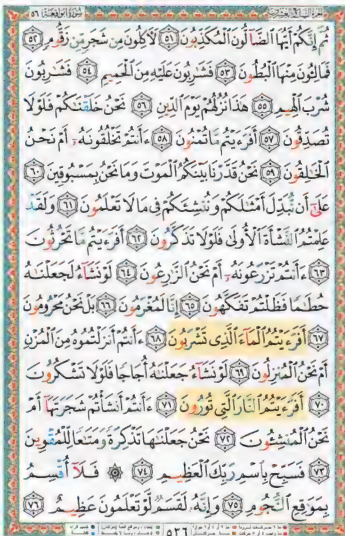 سُورَةُ الوَاقِعَةِ ٥٦
ثُمَّ إِنَّكُمْ أَيُّهَا ٱلضَّآلُّونَ ٱلْمُكَذِّبُونَ ٥١ لَءَاكِلُونَ مِن شَجَرٍ مِّن زَقُّومٍ ٥٢
فَمَالِـُٔونَ مِنْهَا ٱلْبُطُونَ ٥٣ فَشَٰرِبُونَ عَلَيْهِ مِنَ ٱلْحَمِيمِ ٥٤ فَشَٰرِبُونَ
شُرْبَ ٱلْهِيمِ ٥٥ هَٰذَا نُزُلُهُمْ يَوْمَ ٱلدِّينِ ٥٦ نَحْنُ خَلَقْنَٰكُمْ فَلَوْلَا
تُصَدِّقُونَ ٥٧ أَفَرَءَيْتُم مَّا تُمْنُونَ ٥٨ ءَأَنتُمْ تَخْلُقُونَهُۥٓ أَمْ نَحْنُ
ٱلْخَٰلِقُونَ ٥٩ نَحْنُ قَدَّرْنَا بَيْنَكُمُ ٱلْمَوْتَ وَمَا نَحْنُ بِمَسْبُوقِينَ ٦٠
عَلَىٰٓ أَن نُّبَدِّلَ أَمْثَٰلَكُمْ وَنُنشِئَكُمْ فِى مَا لَا تَعْلَمُونَ ٦١ وَلَقَدْ
عَلِمْتُمُ ٱلنَّشْأَةَ ٱلْأُولَىٰ فَلَوْلَا تَذَكَّرُونَ ٦٢ أَفَرَءَيْتُم مَّا تَحْرُثُونَ
٦٣ ءَأَنتُمْ تَزْرَعُونَهُۥٓ أَمْ نَحْنُ ٱلزَّٰرِعُونَ ٦٤ لَوْ نَشَآءُ لَجَعَلْنَٰهُ
حُطَٰمًا فَظَلْتُمْ تَفَكَّهُونَ ٦٥ إِنَّا لَمُغْرَمُونَ ٦٦ بَلْ نَحْنُ مَحْرُومُونَ
٦٧ أَفَرَءَيْتُمُ ٱلْمَآءَ ٱلَّذِى تَشْرَبُونَ ٦٨ ءَأَنتُمْ أَنزَلْتُمُوهُ مِنَ ٱلْمُزْنِ
أَمْ نَحْنُ ٱلْمُنزِلُونَ ٦٩ لَوْ نَشَآءُ جَعَلْنَٰهُ أُجَاجًا فَلَوْلَا تَشْكُرُونَ
٧٠ أَفَرَءَيْتُمُ ٱلنَّارَ ٱلَّتِى تُورُونَ ٧١ ءَأَنتُمْ أَنشَأْتُمْ شَجَرَتَهَآ أَمْ
نَحْنُ ٱلْمُنشِـُٔونَ ٧٢ نَحْنُ جَعَلْنَٰهَا تَذْكِرَةً وَمَتَٰعًا لِّلْمُقْوِينَ
٧٣ فَسَبِّحْ بِٱسْمِ رَبِّكَ ٱلْعَظِيمِ ٧٤ ۞ فَلَآ أُقْسِمُ
بِمَوَٰقِعِ ٱلنُّجُومِ ٧٥ وَإِنَّهُۥ لَقَسَمٌ لَّوْ تَعْلَمُونَ عَظِيمٌ ٧٦
٥٣٦